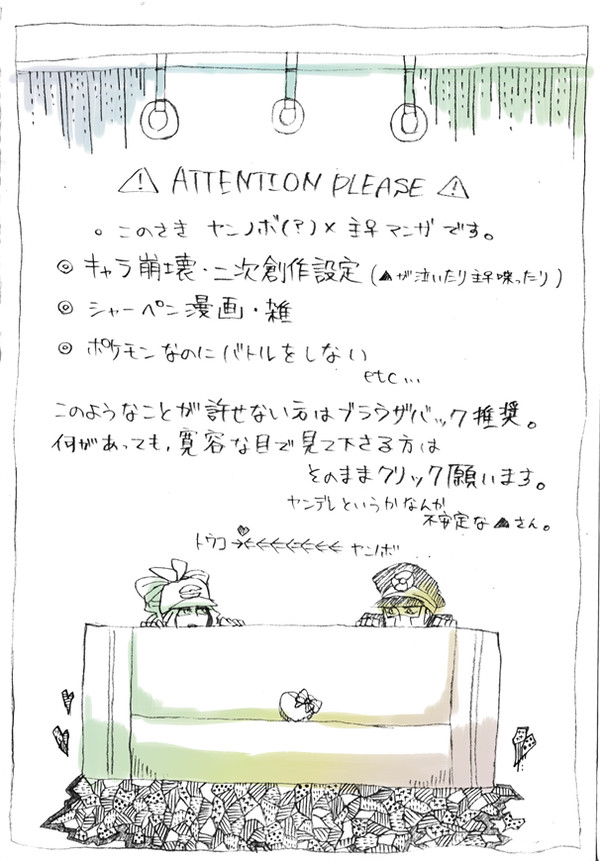 ⚠ ATTENTION PLEASE ⚠
。このさき ヤンノボ(?)×主♀マンガです。
◎ キャラ崩壊・二次創作設定 (▲が泣いたり主♀喋ったり)
◎ シャーペン漫画・雑
◎ ポケモンなのにバトルをしない
etc...
このようなことが許せない方はブラウザバック推奨。
何があっても,寛容な目で見て下さる方は
そのままクリック願います。
ヤンデレというかなんか
不安定な▲さん。
トウコ ヤンノボ..